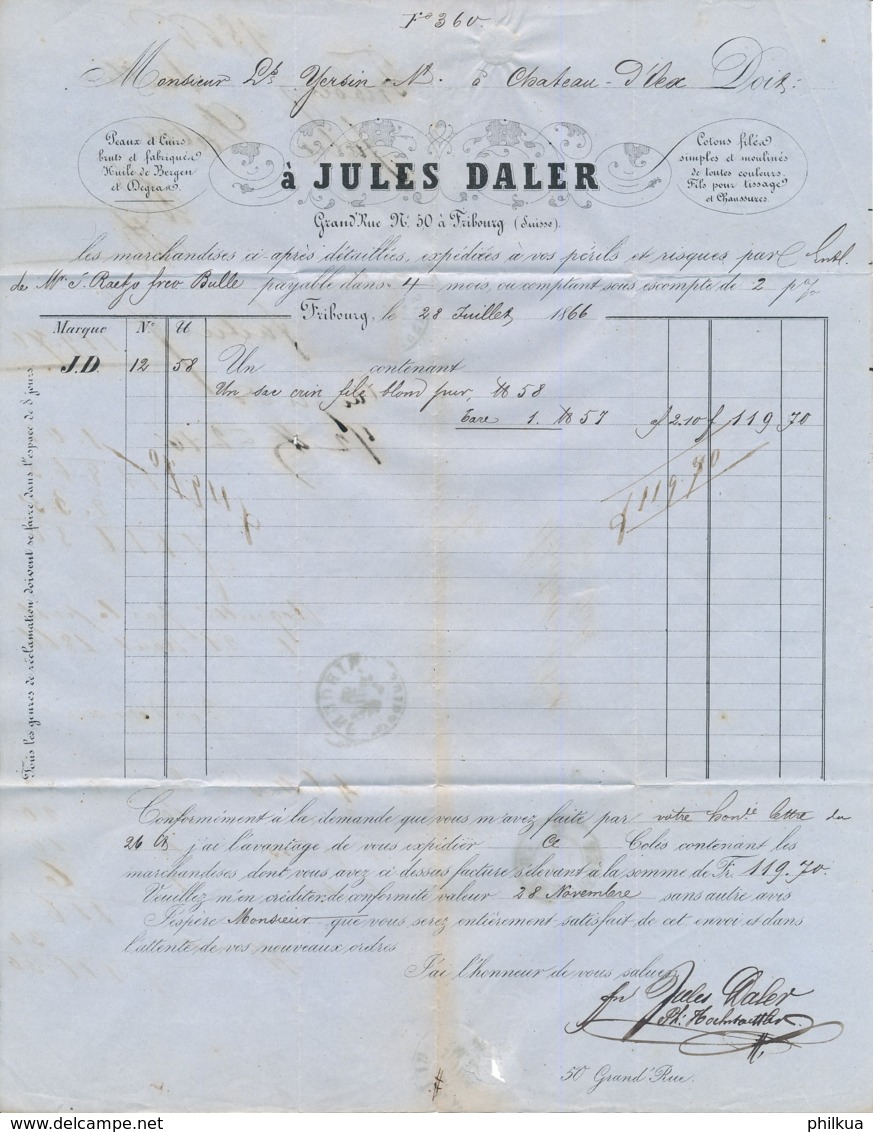 Fo 360.
Monsieur Ls Yersin - Nt. à Chateau-d'Oex Doit:
Peaux et Cuirs
bruts et fabriqués
Huile de Bergen
et Dégras.
à JULES DALER
Cotons filés
simples et moulinés
de toutes couleurs.
Fils pour tissage
et Chaussures.
Grand'Rue No. 50 à Fribourg (Suisse).
les marchandises ci-après détaillées, expédiées à vos périls et risques par Entl.
de Mr. J. Raetzo freo Bulle payable dans 4 mois, ou comptant sous escompte de 2 p%
Fribourg, le 28 Juillet 1866
Marque No. ℔
J.D. 12 58 Un contenant
Un sac crin filé blond pur, ℔ 58
Tare 1. ℔ 57 f 2.10 f 119 70
f 119 70 f 119 70
Tous les genres de réclamation doivent se faire dans l'espace de 8 jours.
Conformément à la demande que vous m'avez faite par votre honée lettre du
26 ct j'ai l'avantage de vous expédier Ce Colis contenant les
marchandises dont vous avez ci dessus facture s'élevant à la somme de Fr. 119.70.
Veuillez m'en créditer de conformité valeur 28 Novembre sans autre avis
J'espère Monsieur que vous serez entièrement satisfait de cet envoi et dans
l'attente de vos nouveaux ordres
J'ai l'honneur de vous saluer
pr Jules Daler
50 Grand'Rue.
philkua